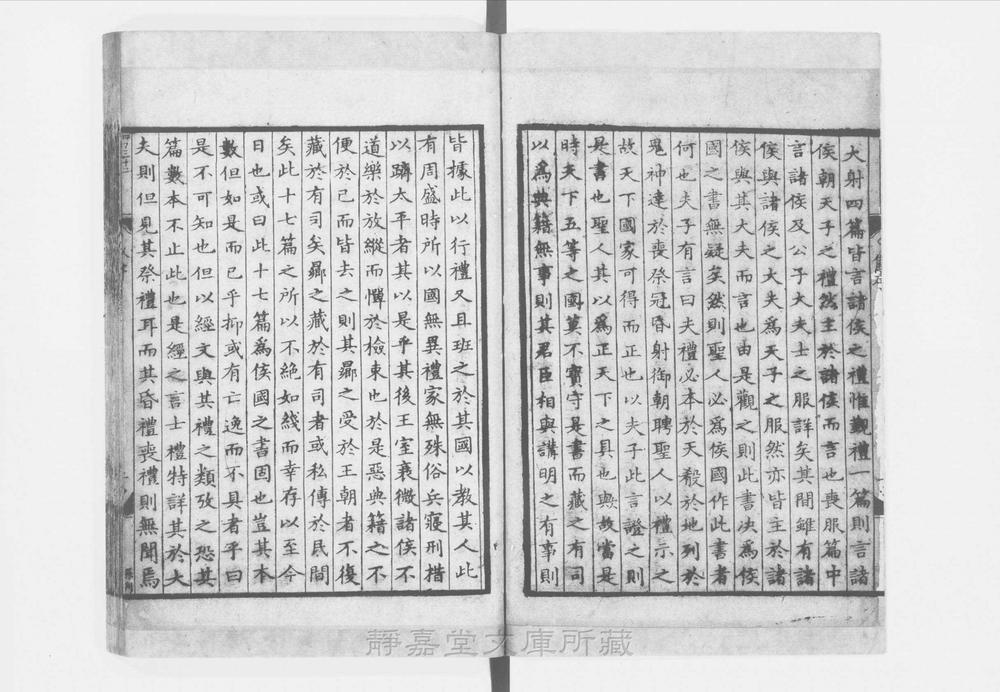 大射四篇皆言諸侯之禮惟覲禮一篇則言諸
侯朝天子之禮然主於諸侯而言也喪服篇中
言諸侯及公子大夫士之服詳矣其間雖有諸
侯與諸侯之大夫爲天子之服然亦皆主於諸
侯與其大夫而言也由是觀之則此書决爲侯
國之書無疑矣然則聖人必爲侯國作此書者
何也夫子有言曰夫禮必本於天殽於地列於
鬼神達於喪祭冠昏射御朝聘聖人以禮示之
故天下國家可得而正也以夫子此言證之則
是書也聖人其以爲正天下之具也與故當是
時天下五等之國莫不寶守是書而藏之有司
以爲典籍無事則其君臣相與講明之有事則
皆據此以行禮又且班之於其國以教其人此
有周盛時所以國無異禮家無殊俗兵寢刑措
以躋太平者其以是乎其後王室衰微諸侯不
道樂於放縱而憚於檢束也於是惡典籍之不
便於己而皆去之則其曏之受於王朝者不復
藏於有司矣曏之藏於有司者或私傳於民間
矣此十七篇之所以不絶如綫而幸存以至今
日也或曰此十七篇爲侯國之書固也豈其本
數但如是而已乎抑或有亡逸而不具者乎曰
是不可知也但以經文與其禮之類攷之恐其
篇數本不止此也是經之言士禮特詳其於大
夫則但見其祭禮耳而其昏禮喪禮則無聞焉
靜嘉堂文庫所藏